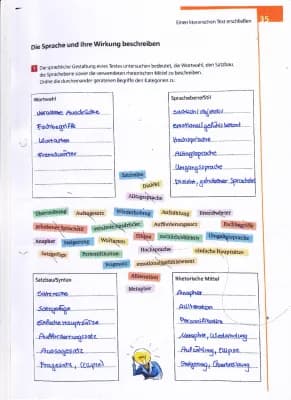 Einen literarischen Text erschließen
35
Die Sprache und ihre Wirkung beschreiben
1 Die sprachliche Gestaltung eines Textes untersuchen bedeutet, die Wortwahl, den Satzbau,
die Sprachebene sowie die verwendeten rhetorischen Mittel zu beschreiben.
Ordne die durcheinander geratenen Begriffe den Kategorien zu.
Wortwahl
Ausdrücke
Fachbegriffe
Wortarten
Fremdwörter
Sprachebene/Stil
sachlich/objektiv
emotional/gefühlsbetont
Hochsprache
Alltagssprache
Umgangssprache
Dialekt, gehobener Sprachstil
Satzreihe
Dialekt
Alltagssprache
Übertreibung Aussagesatz Wiederholung Aufzählung Fremdwörter
gehobener Sprachstil Ausdrücke Aufforderungssatz Fachbegriffe
Anapher Steigerung Wortarten Ellipse sachlich/objektiv Umgangssprache
Satzgefüge Personifikation Hochsprache einfache Hauptsätze
Fragesatz emotional/gefühlsbetont
Alliteration
Metapher
Satzbau/Syntax
Satzreihe
Satzgefüge
einfache Hauptsätze
Aufforderungssatz
Aussagesatz
Fragesatz, (Ellipse)
Rhetorische Mittel
Anapher
Alliteration
Personifikation
Metapher, Wiederholung
Aufzählung, Ellipse
Steigerung, Übertreibung